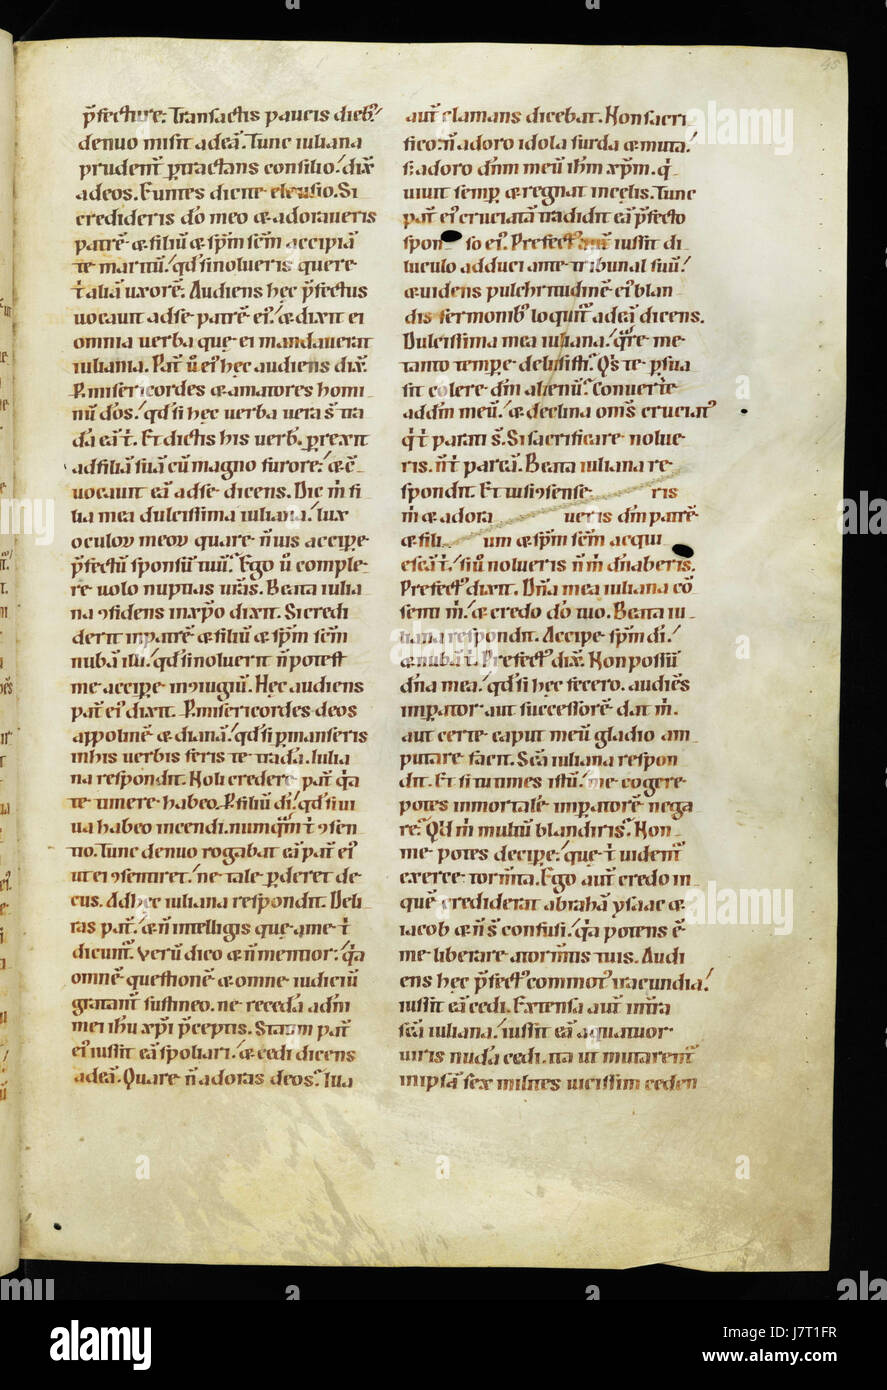 p̄fecture. Transactis paucis dieb;
denuo misit ad eā. Tunc iuliana
prudent̄ ptractans consilio. dix̄
ad eos. Euntes dicite eleusio. Si
credideris dō meo & adoraueris
patrē & filiū & sp̄m sc̄m accipiā
te maritū. qd̄ si nolueris quere
t̄ aliā uxorē. Audiens hęc p̄fectus
uocauit ad se patrē ei᾽. & dixit ei
omnia uerba que ei mandauerat
iuliania. Pat̄ ū ei᾽ hęc audiens dix̄.
P misericordes & amatores homi
nū dōs. qd̄ si hęc uerba uera s̄ tra
dā eā t̄. Et dictis his uerb. prexit
ad filiā suā cū magno furore. & c̄
uocauit eā ad se dicens. Dic m̄ fi
lia mea dulcissima iuliana. lux
oculoꝝ meoꝝ quare n̄ uis accipe
p̄fectū sponsū tuū. Ego ū comple
re uolo nuptias ur̄as. Beata iulia
na ꝯfidens in xp̄o dixit. Si credi
derit in patrē & filiū & sp̄m sc̄m
nubā illi. qd̄ si noluerit n̄ potest
me accipe in ꝯiugiū. Hęc audiens
pat̄ ei᾽ dixit. P misericordes deos
appolinē & dianā. qd̄ si pmanseris
in his uerbis feris te tradā. Iulia
na respondit. Noli credere pat̄ qa
te timere habeo. P filiū dī. qd̄ si ui
ua habeo incendi. numqm̄ t̄ ꝯsen
tio. Tunc denuo rogabat eā pat̄ ei᾽
ut ei ꝯsentiret. ne tale pderet de
cus. Ad hęc iuliana respondit. Deli
ras pat̄. & n̄ intelligis que a me t̄
dicunt̄. Verū dico & n̄ mentior. qa
omnē questionē & omne iudiciū
gratant̄ sustineo. ne recedā a dn̄i
mei ihū xp̄i p̄ceptis. Statim pat̄
ei᾽ iussit eā spoliari. & cedi dicens
ad eā. Quare n̄ adoras deos. Iulia
aut̄ clamans dicebat. Non sacri
fico. n̄ adoro idola surda & muta.
s; adoro dn̄m meū ihm̄ xp̄m. q̄
uiuit semp & regnat in cęlis. Tunc
pat̄ ei᾽ cruciatā tradidit eā p̄fecto
spon so ei᾽. Prefect᾽ aut̄ iussit di
luculo adduci ante tribunal suū.
& uidens pulchritudinē ei᾽ blan
dis sermonib; loquit̄ ad eā dicens.
Dulcissima mea iuliana. qr̄e me
tanto tempe delusisti. Qs te psua
sit colere dm̄ alienū. Conuerte
ad dm̄ meū. & declina om̄s cruciat᾽
q̄ t̄ parati s̄. Si sacrificare nolue
ris. n̄ t̄ parcā. Beata iuliana re
spondit. Et tu si ꝯsense ris
m̄ & adora ueris dm̄ patrē
& fili um & sp̄m sc̄m acqui
escā t̄. si ū nolueris n̄ m̄ dn̄aberis.
Prefect᾽ dixit. Dn̄a mea iuliana cō
senti m̄. & credo dō tuo. Beata iu
liana respondit. Accipe sp̄m dī.
& nubā t̄. Prefect᾽ dix̄. Non possū
dn̄a mea. qd̄ si hęc fecero. audiēs
imperator aut successorē dat m̄.
aut certe caput meū gladio am
putare facit. Sc̄a iuliana respon
dit. Et si tu times istū. me cogere
potes inmortalē imperatorē nega
re. Qd̄ m̄ multū blandiris. Non
me potes decipe. que t̄ uident̄
exerce torm̄ta. Ego aut̄ credo in
quē crediderit abrahā ysaac &
iacob & n̄ s̄ confusi. qa potens ē
me liberare a torm̄tis tuis. Audi
ens hęc p̄fect᾽ commot᾽ iracundia.
iussit eā cedi. Extensa aut̄ in t̄ra
sc̄a iuliana. iussit eā a quatuor
uiris nudā cedi. ita ut mutarent̄
in ipsā sex milites uicissim ceden
alamy
a
www.alamy.com
J7T1FR